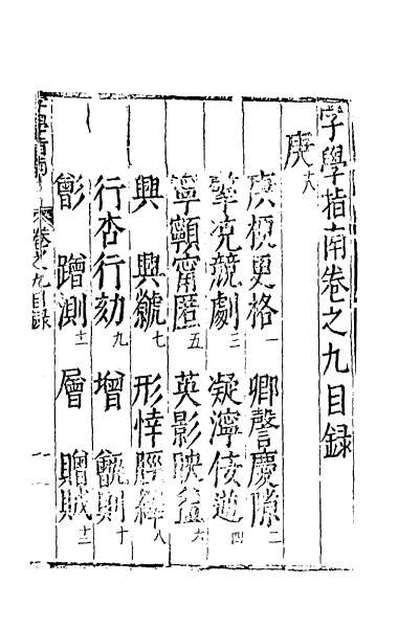 字學指南卷之九目録
庚十八
庚梗更格一 卿謦慶隙二
擎 競劇三 凝濘佞逆四
寧顊甯匿五 英影映益六
興 興 七 形悻脛 八
行杏行劾九 增 則十
層 贈賊十二
蹭測十一
字學指南 卷之九目録 一